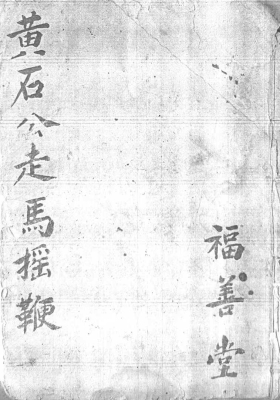 黄石公走馬摇鞭
福善堂